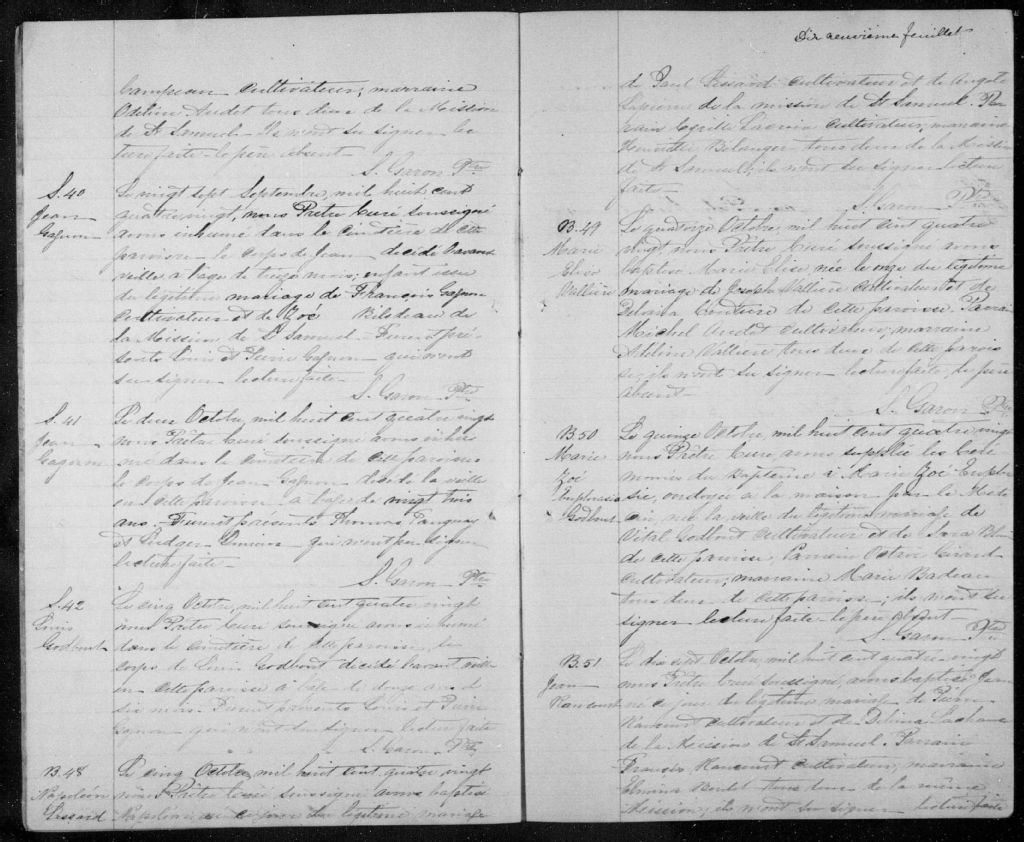 Campeau cultivateur, marraine
Adeline Audet tous deux de la Mission
de St Samuel. Ils n'ont su signer lec
ture faite. le père absent.
S. Garon Ptre
S. 40
Jean
Gagnon
Le vingt sept Septembre, mil huit cent
quatre vingt, nous Prêtre Curé soussigné
avons inhumé dans le cimetière de cette
paroisse le corps de Jean décédé l'avant
veille à l'âge de treize mois, enfant issu
du légitime mariage de François Gagnon
Cultivateur et de Zoé Bilodeau de
la Mission de St Samuel. Furent pré
sents Louis et Pierre Gagnon qui n'ont
su signer. lecture faite.
S. Garon Ptre
S. 41
Jean
Gagnon
Le deux Octobre, mil huit cent quatre vingt
nous Prêtre Curé soussigné avons inhu
mé dans le cimetière de cette paroisse
le corps de Jean Gagnon décédé la veille
en cette paroisse à l'âge de vingt trois
ans. Furent présents Thomas Tanguay
et qui n'ont pu signer
lecture faite.
S. Garon Ptre
S. 42
Louis
Godbout
Le cinq Octobre, mil huit cent quatre vingt
nous Prêtre Curé soussigné avons inhumé
dans le cimetière de cette paroisse, le
corps de Louis Godbout décédé l'avant veille
en cette paroisse à l'âge de douze ans et
six mois. Furent présents Louis et Pierre
Gagnon qui n'ont su signer lecture faite
S. Garon Ptre
B. 48
Napoléon
Lessard
Le cinq Octobre, mil huit cent quatre vingt
nous Prêtre Curé soussigné avons baptisé
Napoléon né ce jour du légitime mariage
Dix neuvième feuillet
de Paul Lessard cultivateur et de Angèle
de la mission de St Samuel. Par
rain Cyrille cultivateur, marraine
Henriette Bélanger tous deux de la Mission
de St Samuel, ils n'ont su signer lecture
faite.
S. Garon Ptre
B. 49
Marie
Elise
Vallière
Le quatorze Octobre, mil huit cent quatre
vingt, nous Prêtre Curé soussigné avons
baptisé Marie Elise, née le onze du légitime
mariage de Joseph Vallière Cultivateur et de
Couture de cette paroisse. Parrain
Michel Audet Cultivateur, marraine
Adeline Vallière tous deux de cette parois
se, ils n'ont su signer lecture faite, le père
absent.
S. Garon Ptre
B. 50
Marie
Zoé
Euphrasie
Godbout
Le quinze Octobre, mil huit cent quatre vingt
nous Prêtre Curé, avons suppléé les céré
monies du baptême à Marie Zoé Euphra
sie, ondoyée à la maison par le Méde
cin, née la veille du légitime mariage de
Vital Godbout Cultivateur et de
de cette paroisse, Parrain Octave Girard
cultivateur, marraine Marie Badeau
tous deux de cette paroisse, ils n'ont su
signer lecture faite le père absent.
S. Garon Ptre
B. 51
Jean
Rancourt
Le dix sept Octobre, mil huit cent quatre vingt
nous Prêtre Curé soussigné, avons baptisé Jean
né ce jour du légitime mariage de Pierre
Rancourt cultivateur et de Delima Lachance
de la Mission de St Samuel. Parrain
Rancourt cultivateur, marraine
Boulet tous deux de la même
Mission, ils n'ont su signer lecture faite